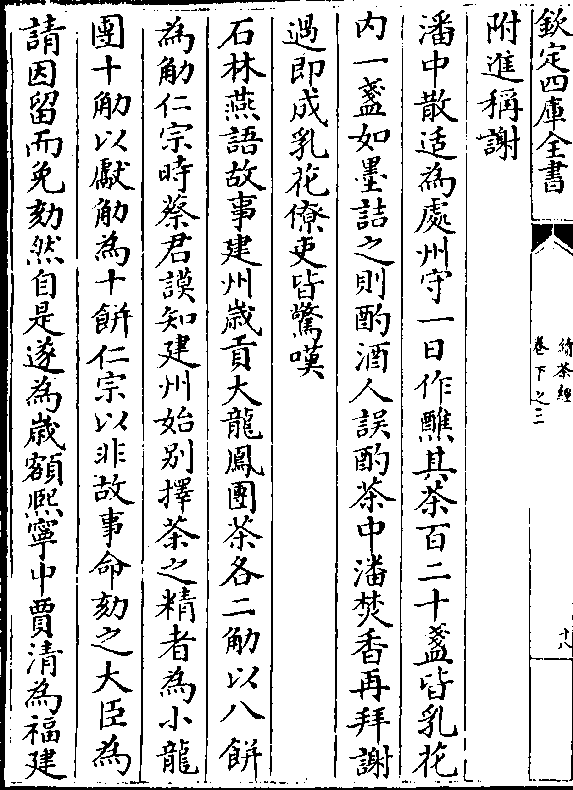 欽定四庫全書
續茶經
卷下之三
十八
附進稱謝
潘中散适為處州守一日作醮其茶百二十盞皆乳花
内一盞如墨詰之則酌酒人誤酌茶中潘焚香再拜謝
過即成乳花僚吏皆驚嘆
石林燕語故事建州嵗貢大龍鳳團茶各二觔以八餅
為觔仁宗時蔡君謨知建州始别擇茶之精者為小龍
團十觔以獻觔為十餅仁宗以非故事命劾之大臣為
請因留而免劾然自是遂為嵗額熙寧中賈清為福建